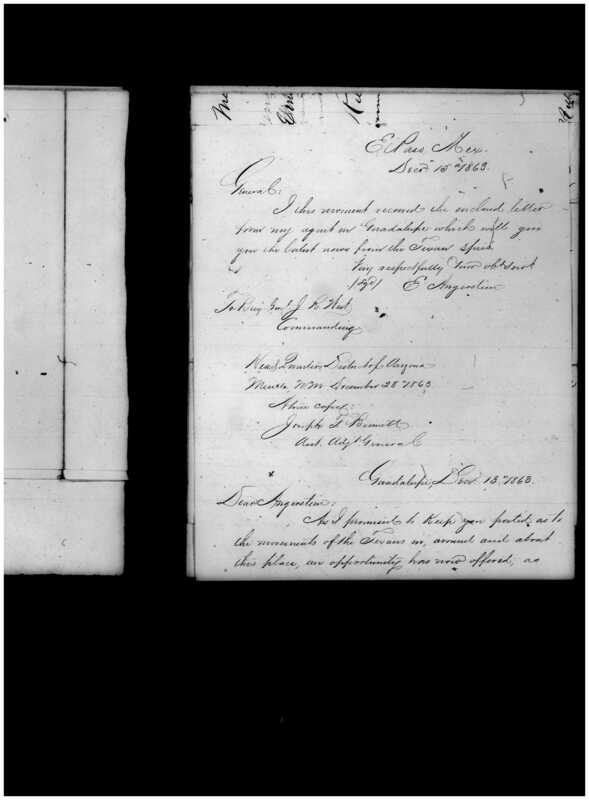 El Paso, Mex.
Decr. 15th 1863.
General:
I this moment received the enclosed letter
from my agent in Guadalupe which will give
you the latest news from the Texan spies
Very respectfully Your obt. Servt
(Sgd) E Angerstein
To Brig. Genl. J R West
Commanding
Head Quarters District of Arizona
Mesilla, N.M. December 28th 1863
A true copy:
Joseph F Bennett
Asst. Adjt General
Guadalupe, Decr 13th 1863.
Dear Angerstein:
As I promised to keep you posted, as to
the movements of the Texans in, around and about
this place, an opportunity has now offered, as